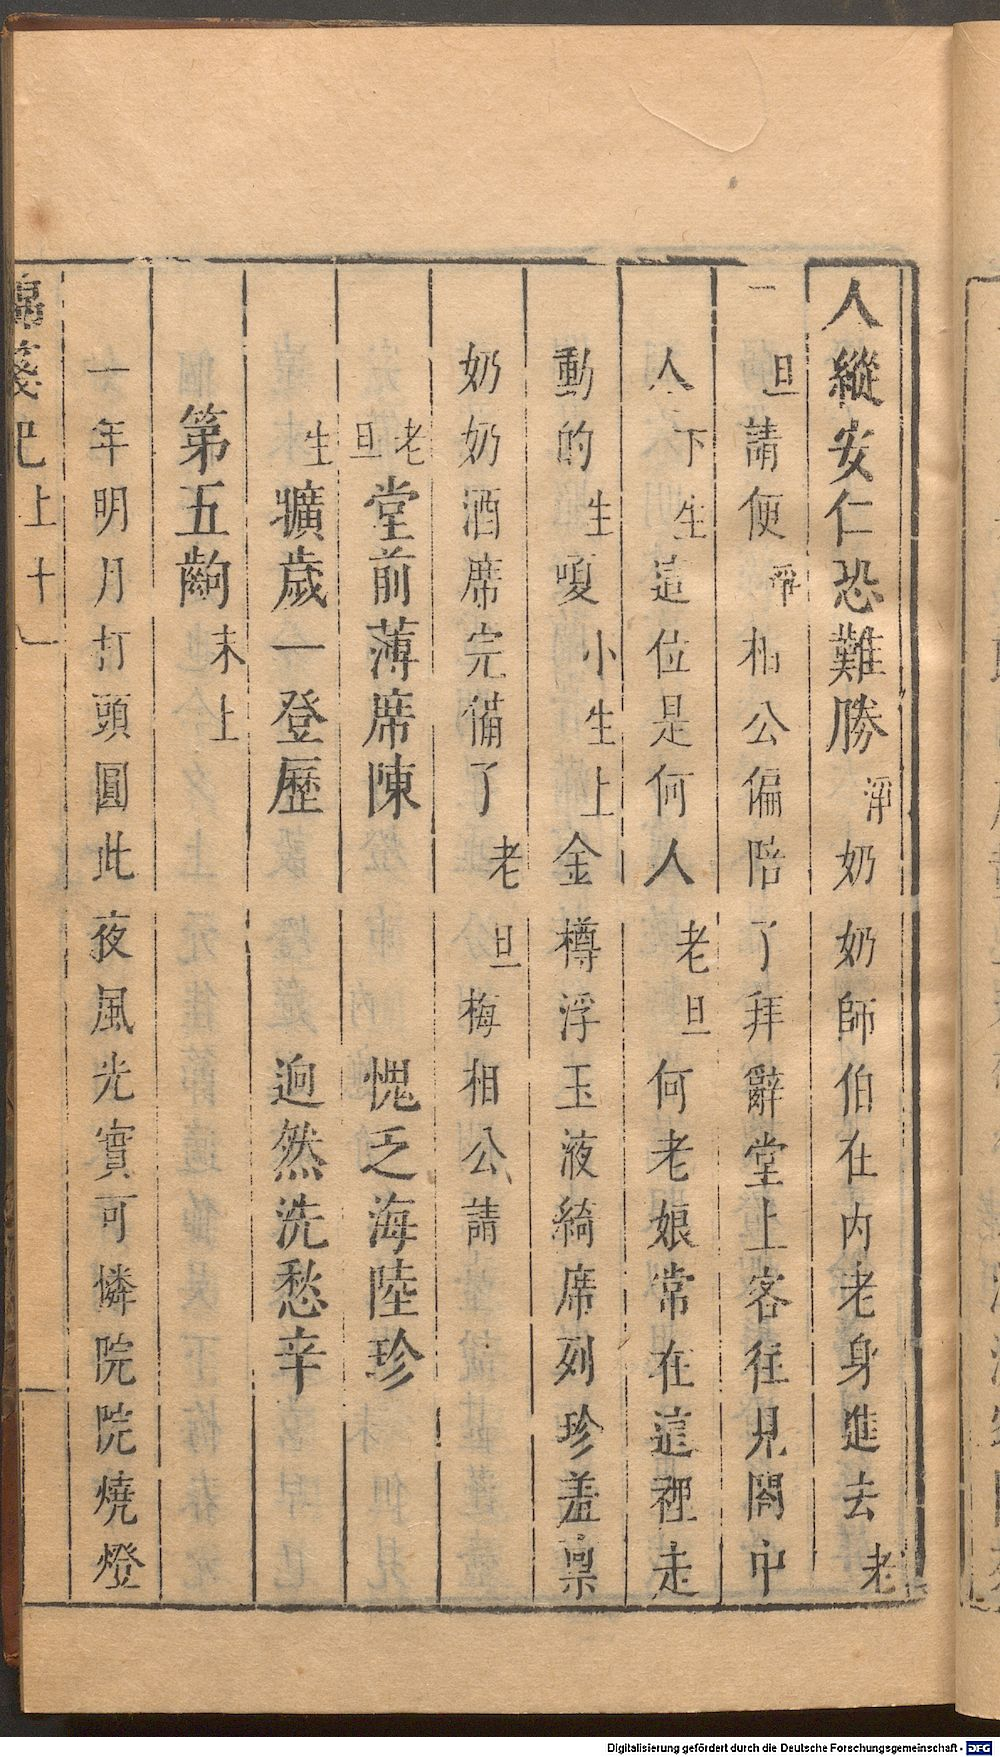 人縱安仁恐難勝淨奶奶師伯在內老身進去老
旦請便淨相公偏陪了拜辭堂上客往見閣中
人下生這位是何人老旦何老娘常在這裡走
動的生嗄小生上金樽浮玉液綺席列珍羞稟
奶奶酒席完備了老旦梅相公請
老旦堂前薄席陳　愧乏海陸珍
生曠歲一登歷　迥然洗愁辛
第五齣末上
一年明月打頭圓此夜風光實可憐院院燒燈
錦箋記上 十一
Digitalisierung gefördert durch die Deutsche Forschungsgemeinschaft - DFG